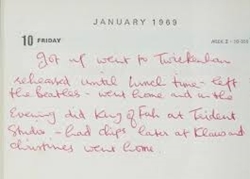 JANUARY 1969
10 FRIDAY
Got up went to Twickenham
rehearsed until lunch time - left
the Beatles - went home and in the
evening did King of Fuh at Trident
Studio - had chips later at Klaus and
Christines went home.